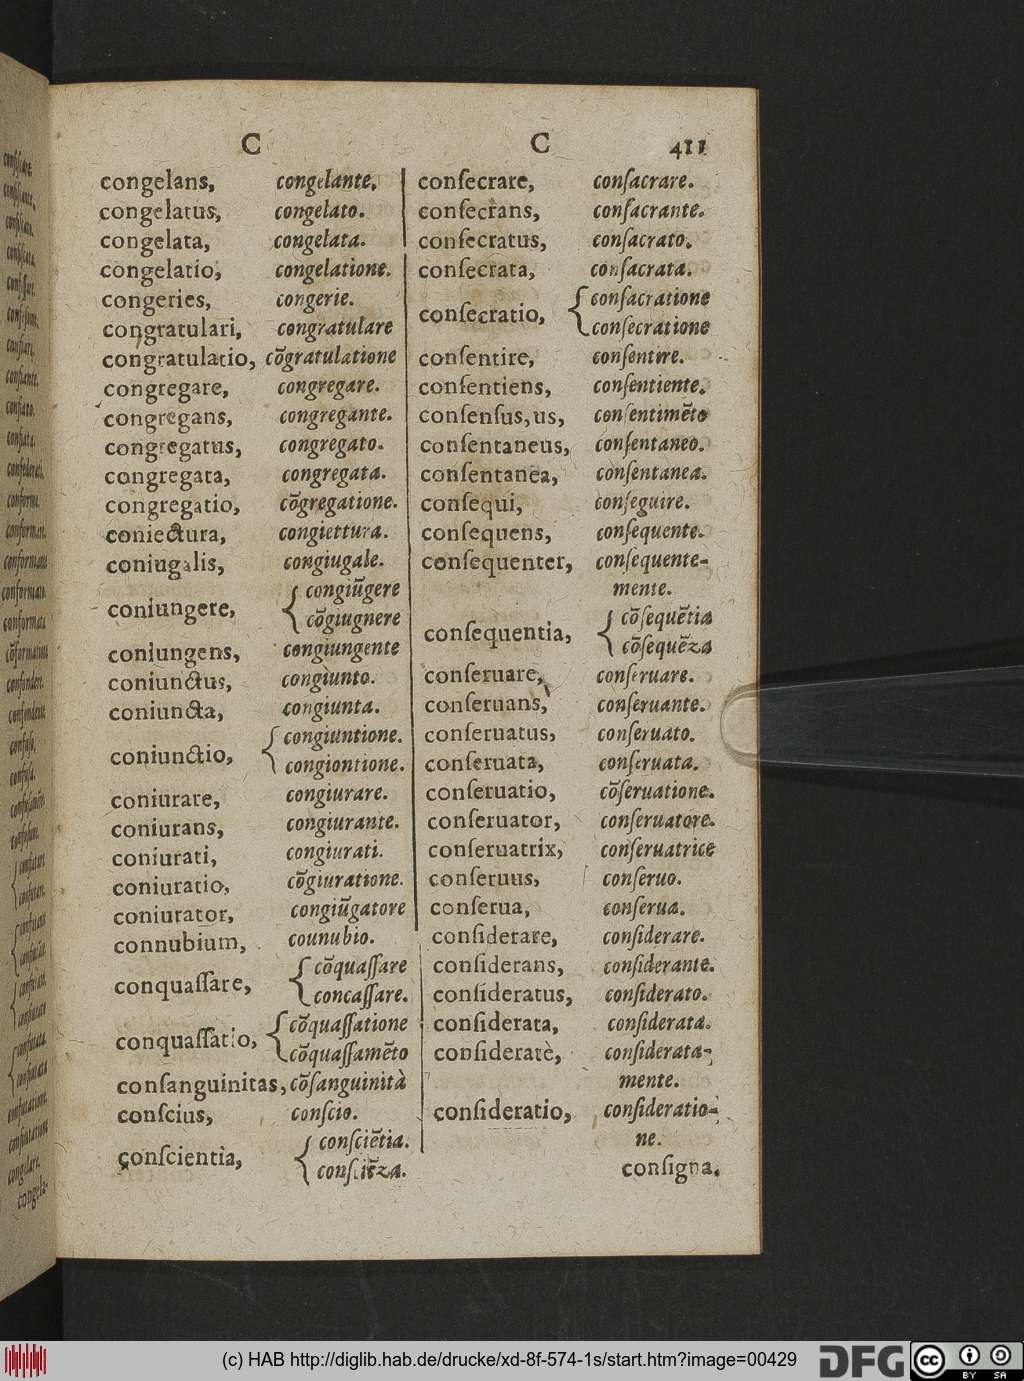 C C 411
congelans, congelante,
congelatus, congelato.
congelata, congelata.
congelatio, congelatione.
congeries, congerie.
congratulari, congratulare
congratulatio, cõgratulatione
congregare, congregare.
congregans, congregante.
congregatus, congregato.
congregata, congregata.
congregatio, cõgregatione.
coniectura, congiettura.
coniugalis, coniugale.
coniungere, { congiũgere
cõgiugnere
coniungens, congiungente
coniunctus, congiunto.
coniuncta, congiunta.
coniunctio, { congiuntione.
congiontione.
coniurare, congiurare.
coniurans, congiurante.
coniurati, congiurati.
coniuratio, cõgiuratione.
coniurator, congiũgatore
connubium, counubio.
conquaſſare, { cõquaſſare
concaſſare.
conquaſſatio, { cõquaſſatione
cõquaſſamẽto
conſanguinitas, cõſanguinità
conſcius, conſcio.
conſcientia, { conſciẽtia.
conſciẽza.
conſecrare, conſacrare.
conſecrans, conſacrante.
conſecratus, conſacrato.
conſecrata, conſacrata.
conſecratio, { conſacratione
conſecratione
conſentire, conſentire.
conſentiens, conſentiente.
conſenſus, us, conſentimẽto
conſentaneus, conſentaneo.
conſentanea, conſentanea.
conſequi, conſeguire.
conſequens, conſequente.
conſequenter, conſequente-
mente.
conſequentia, { cõſequẽtia
cõſequẽza
conſeruare, conſeruare.
conſeruans, conſeruante.
conſeruatus, conſeruato.
conſeruata, conſeruata.
conſeruatio, cõſeruatione.
conſeruator, conſeruatore.
conſeruatrix, conſeruatrice
conſeruus, conſeruo.
conſerua, conſerua.
conſiderare, conſiderare.
conſiderans, conſiderante.
conſideratus, conſiderato.
conſiderata, conſiderata.
conſideratè, conſiderata-
mente.
conſideratio, conſideratio-
ne.
conſigna.
(c) HAB http://diglib.hab.de/drucke/xd-8f-574-1s/start.htm?image=00429
DFG
cc BY SA